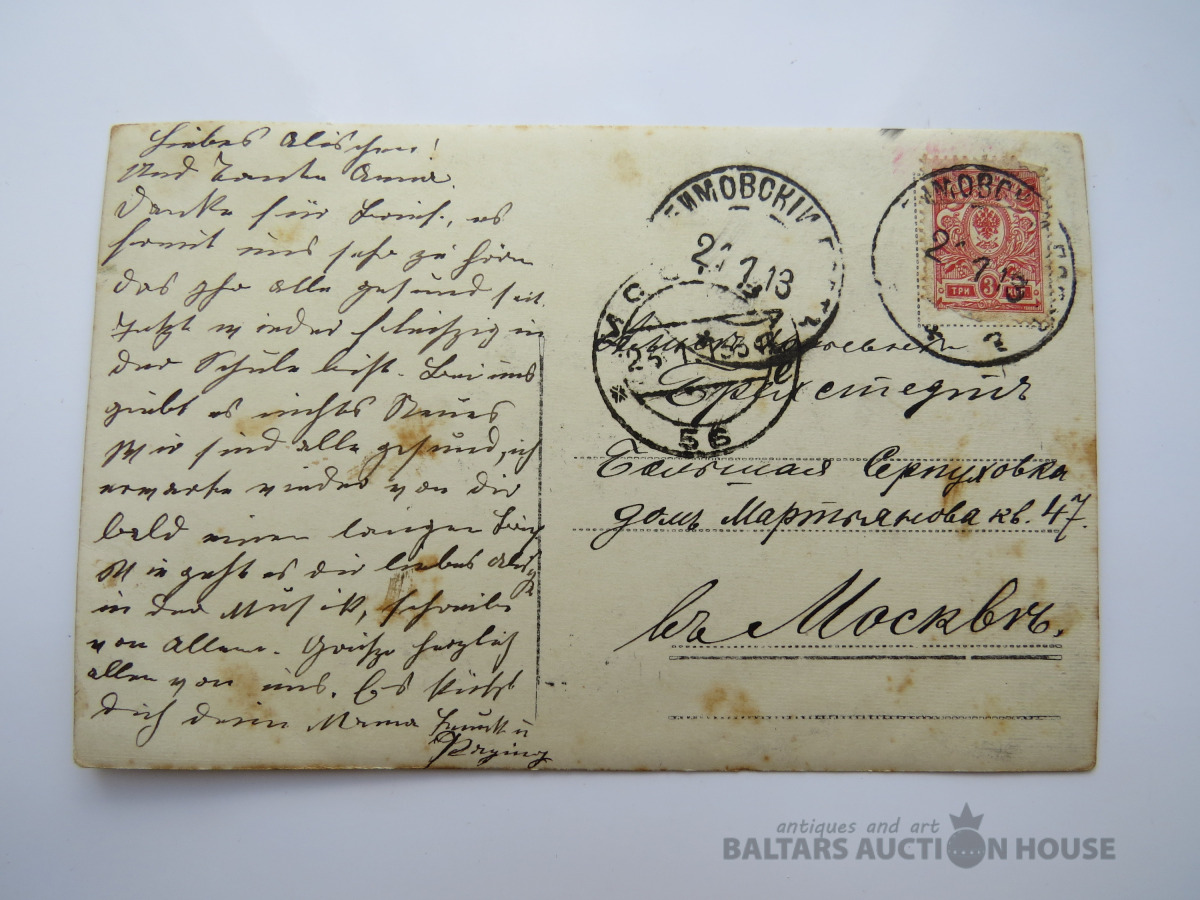 Liebes Alischen!
Und Tante Anna.
Danke für Brief, es
freut uns sehr zu hören
das Ihr alle gesund seit.
Jetzt wieder fleiszig in
der Schule bist. Bei uns
giebt es nichts Neues
Wir sind alle gesund, ich
erwarte wieder von dir
bald einen langen Brief
Wie geht es dir liebes Alis
in der Musik, schreibe
von Allem. Grüsze herzlich
allen von uns. Es küszt
dich deine Mama
ИМОВСКІЙ
1.13
МОСКВА
25.1.13
56
ИМОВСК
1.13
ТРИ 3 КОП
Брехстедтъ
Большая Серпуховка
домъ Мартьянова кв. 47.
въ Москвѣ.
antiques and art
BALTARS AUCTION HOUSE